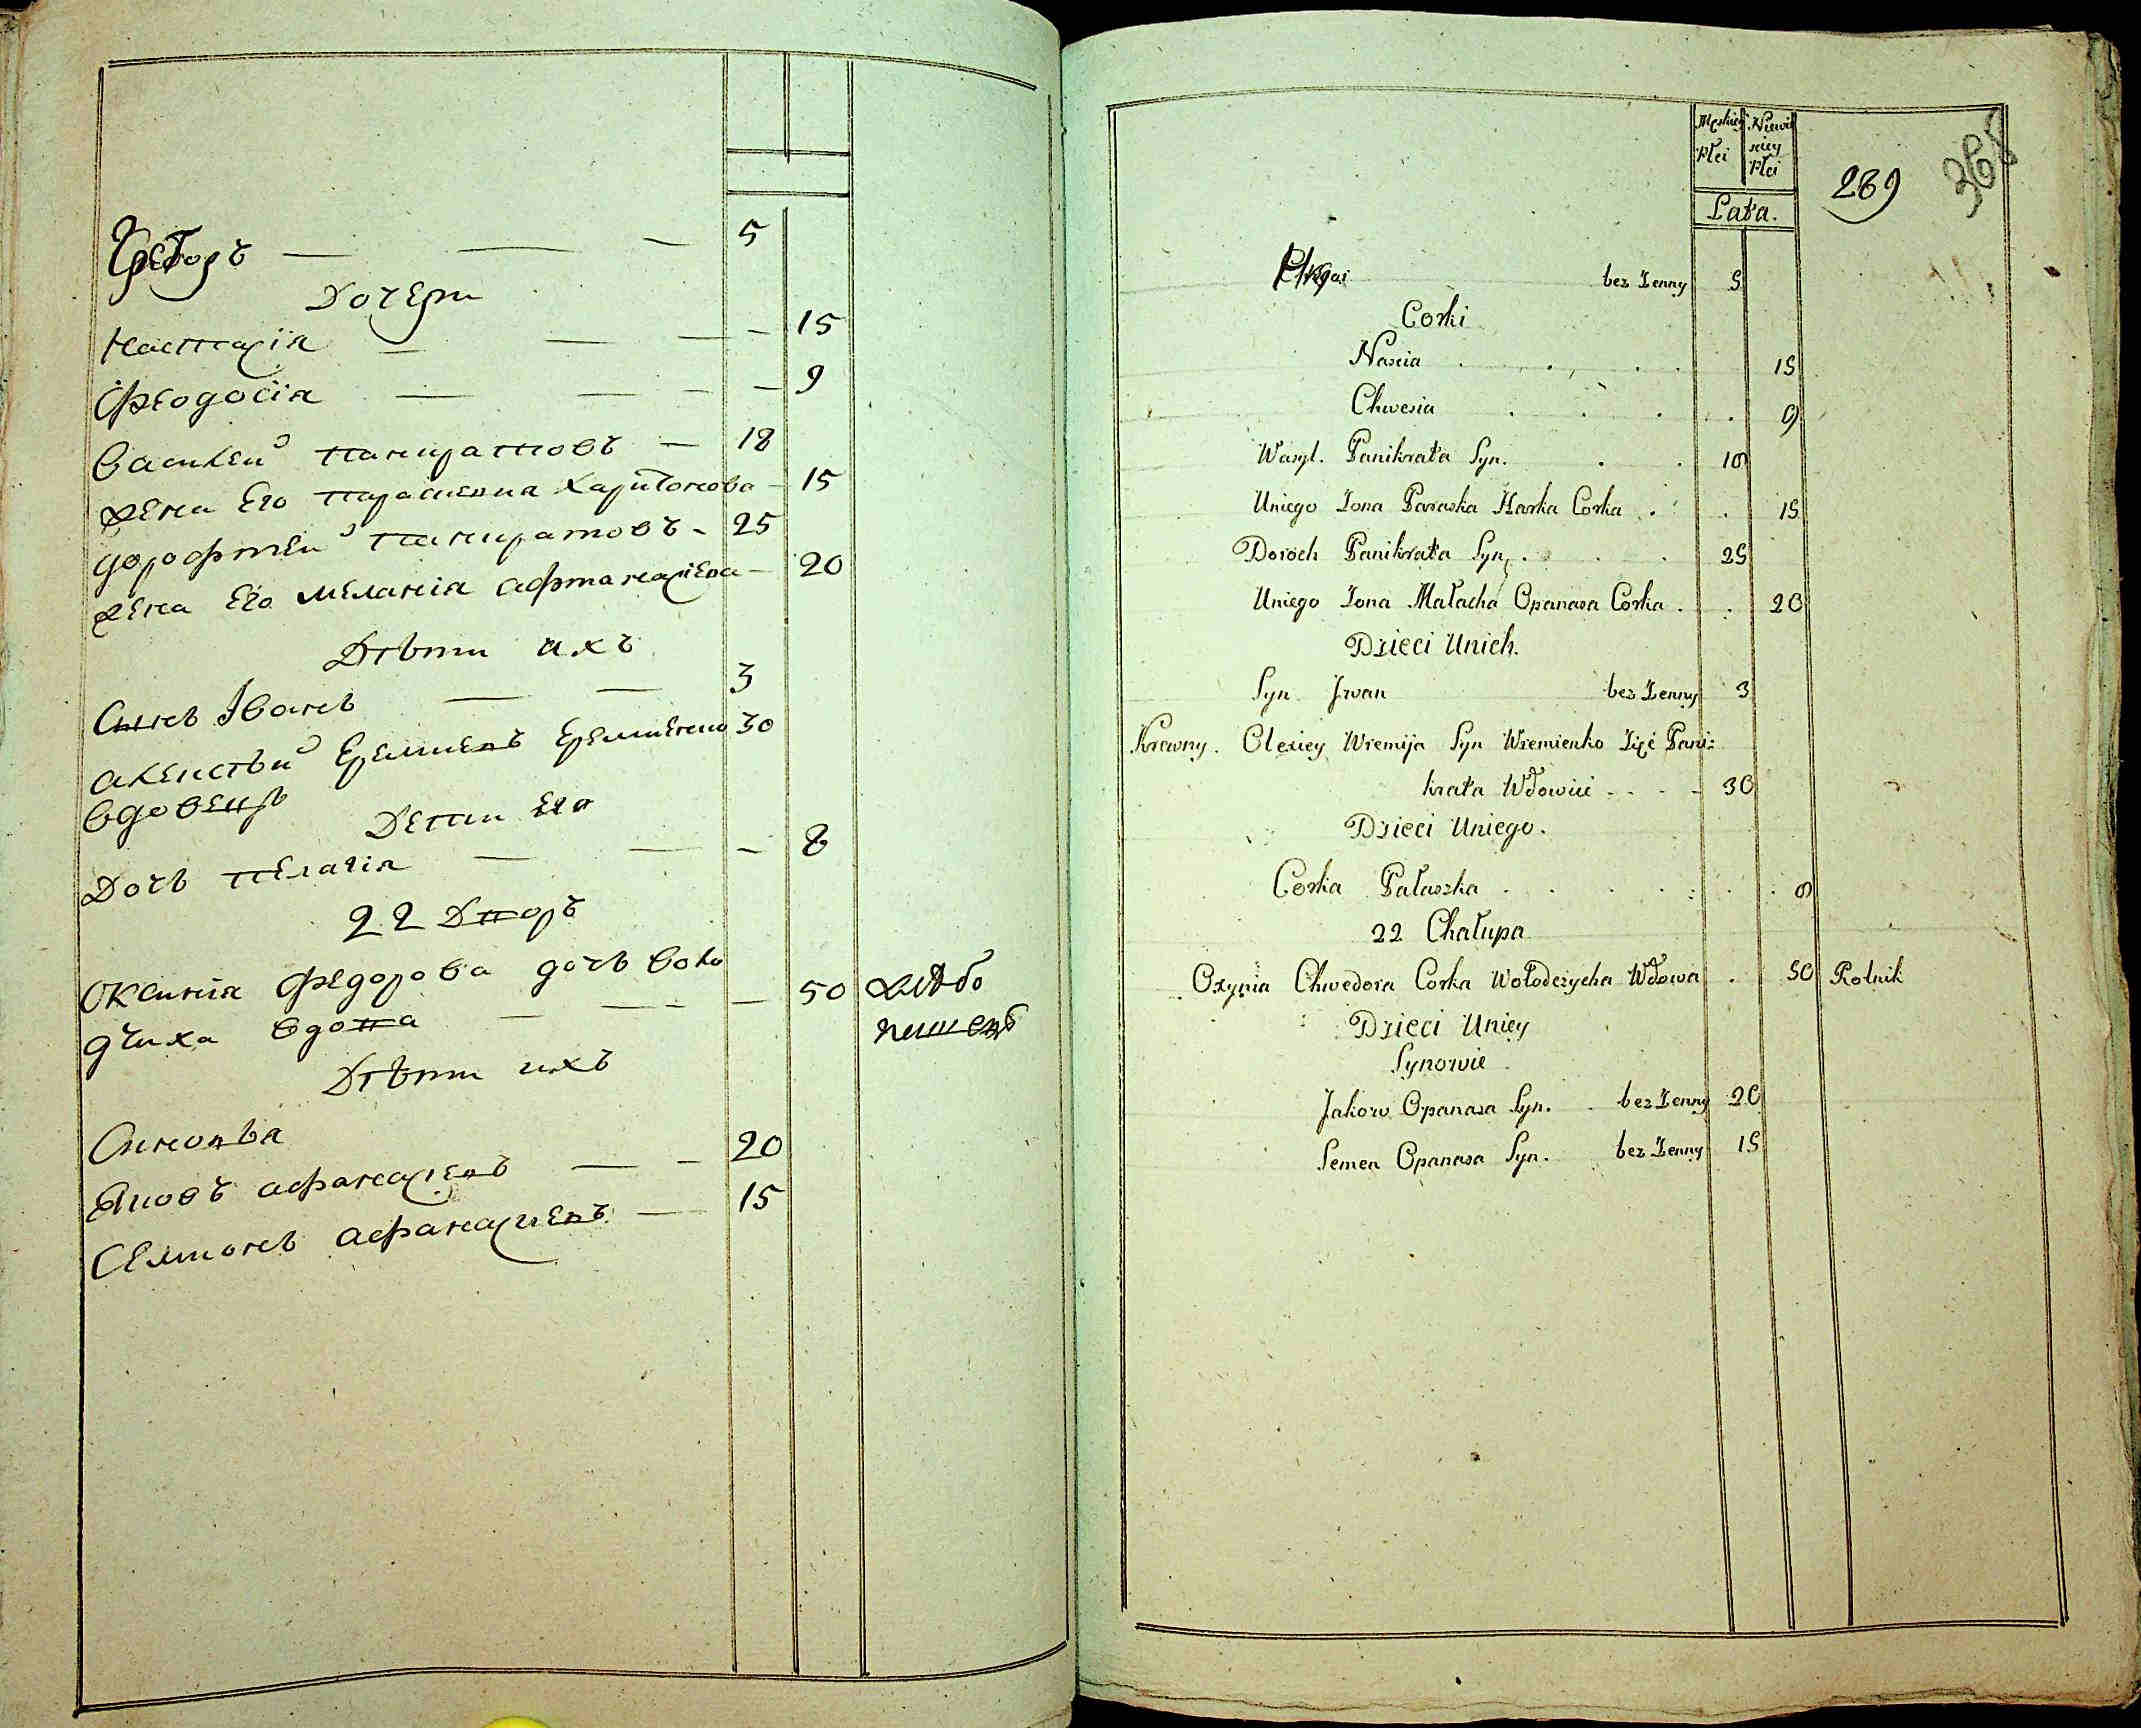 5
Дочери
Настасія 15
Феодосіа 9
Василей Панкратовъ 18
жена Его Парасковиа Харитонова 15
дорофтей Панкратовъ 25
жена Его Меланія афтанасіева 20
Дѣти ихъ
Сынъ Іванъ 3
алексѣй Еремиевъ Еременко 30
вдовецъ
Дети Его
Дочь Пелагія 8
22 Дворъ
Оксинія Федорова дочь Воло
дчиха вдова 50 хлѣбо
пашецъ
Дѣти ихъ
Сыновья
Яковъ афанасиевъ 20
Семионъ афанасиевъ 15
Męskiey Płci Niewie sciey Płci
Lata.
289
bez Zenny 5
Corki
Nascia 15
Chwesia 9
Wasyl. Panikrata Syn. 18
Uniego Zona Paraska Harka Corka 15
Doroch Panikrata Syn. 25
Uniego Zona Małacha Opanasa Corka 20
Dzieci Unich.
Syn Jwan bez Zenny 3
Krewny. Olexiey Wremija Syn Wremienko Zięć Pani:
krata Wdowiec 30
Dzieci Uniego.
Corka Pałaszka 8
22 Chałupa
Oxynia Chwedora Corka Wołodczycha Wdowa 50 Rolnik
Dzieci Uniey
Synowie
Jakow Opanasa Syn. bez Zenny 20
Semen Opanasa Syn. bez Zenny 15